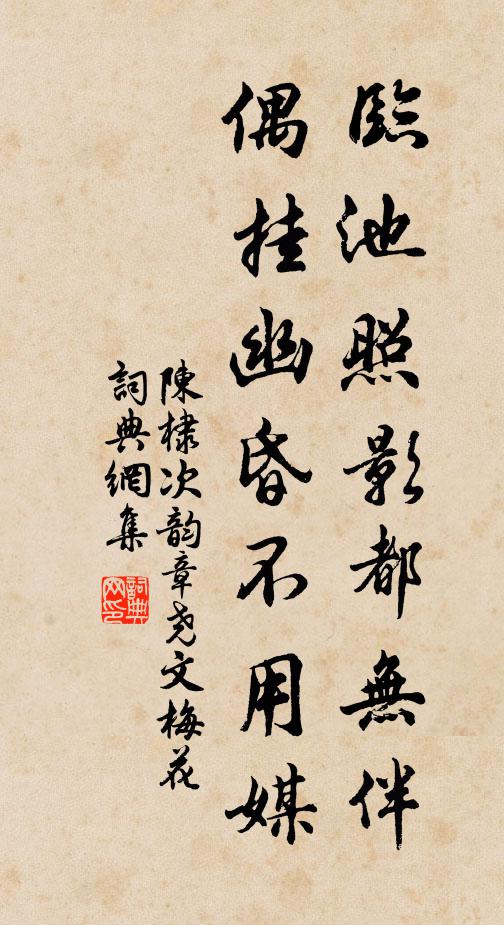 臨池照影都無伴
偶挂幽昏不用媒
陳棣次韵章尧文梅花
詞典網集
詞典網印